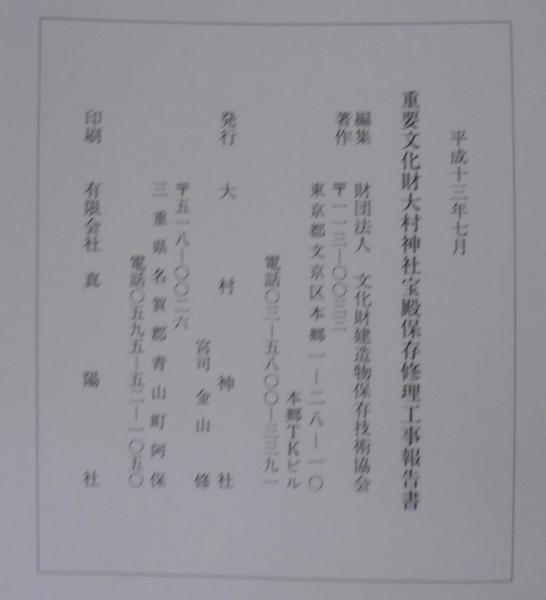 平成十三年七月
重要文化財大村神社宝殿保存修理工事報告書
編集
著作
財団法人 文化財建造物保存技術協会
〒一一三―〇〇三三
東京都文京区本郷一―二八―一〇
本郷TKビル
電話〇三―五八〇〇―三三九一
発行 大村神社
宮司 金山 修
〒五一八―〇〇二六
三重県名賀郡青山町阿保
電話〇五九五―五二―一〇五〇
印刷 有限会社 真陽社